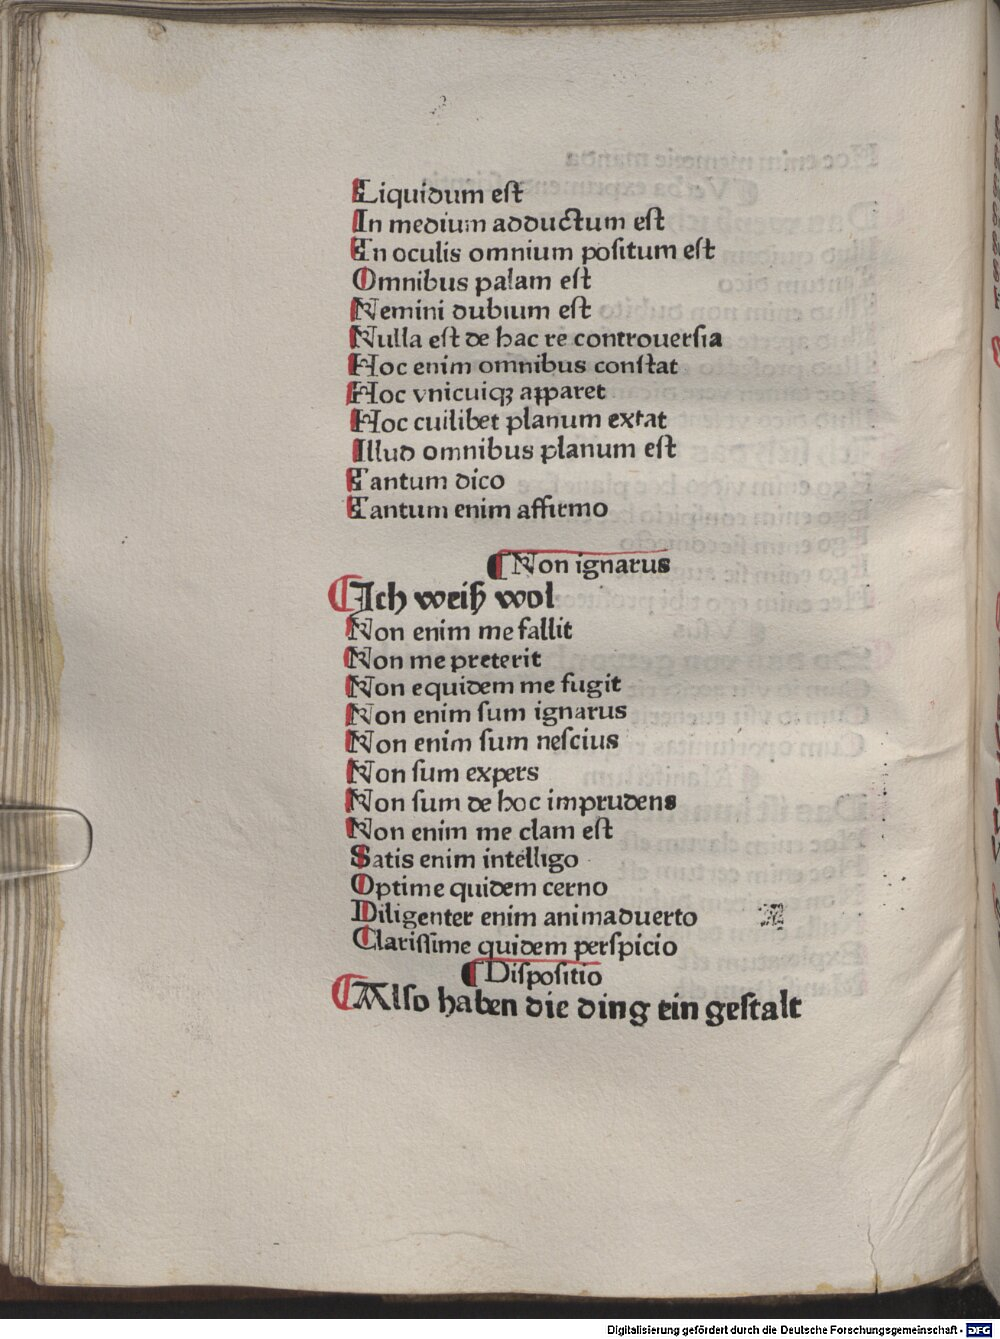 Liquidum eſt
In medium adductum eſt
En oculis omnium poſitum eſt
Omnibus palam eſt
Nemini dubium eſt
Nulla eſt de hac re controuerſia
Hoc enim omnibus conſtat
Hoc vnicuiqꝫ apparet
Hoc cuilibet planum extat
Illud omnibus planum eſt
Tantum dico
Tantum enim affirmo
¶ Non ignarus
¶ Ich weiß wol
Non enim me fallit
Non me preterit
Non equidem me fugit
Non enim ſum ignarus
Non enim ſum neſcius
Non ſum expers
Non ſum de hoc imprudens
Non enim me clam eſt
Satis enim intelligo
Optime quidem cerno
Diligenter enim animaduerto
Clariſſime quidem perſpicio
¶ Diſpoſitio
¶ Alſo haben die ding ein geſtalt
Digitalisierung gefördert durch die Deutsche Forschungsgemeinschaft - DFG